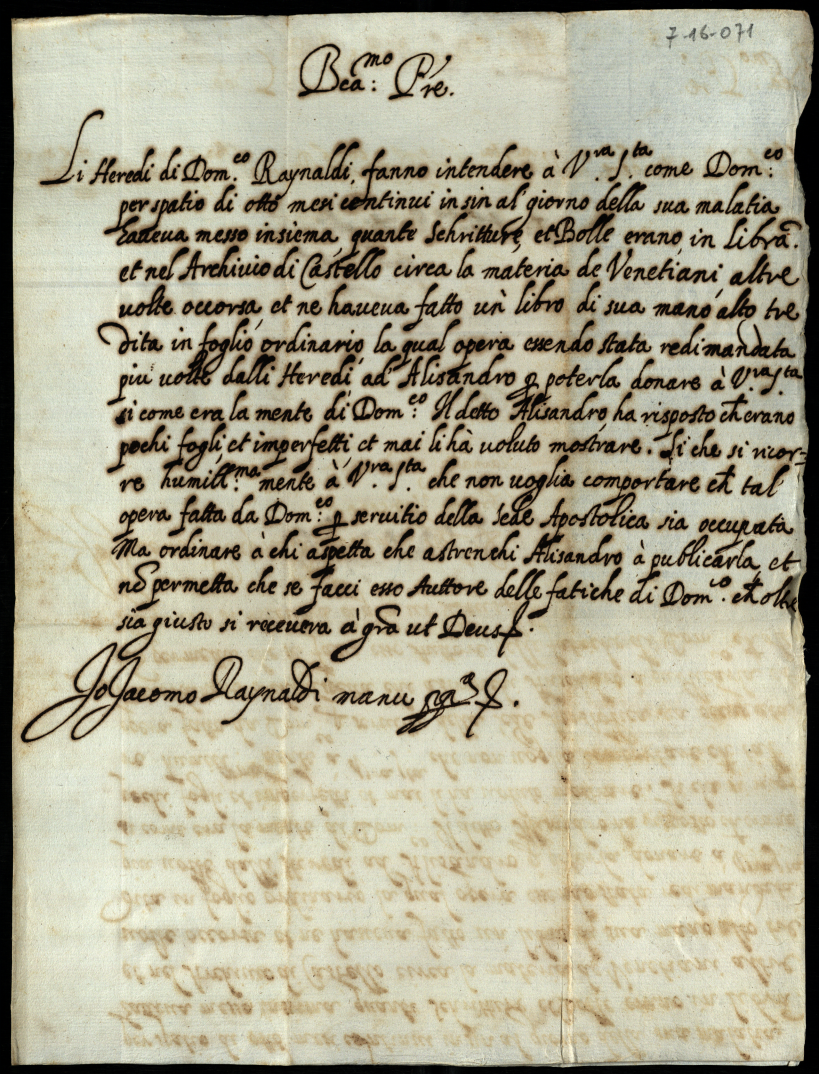 7-16-071
Bea:mo Pre.
Li Heredi di Dom:co Raynaldi, fanno intendere à V.ra S.ta come Dom:co
per spatio di otto mesi continui insin al' giorno della sua malatia
haveva messo insiema, quante Schritture, et Bolle erano, in Libra.
et nel Archivio di Castello circa la materia de Venetiani, altre
volte occorsa, et ne haveva fatto un' libro di sua mano, alto tre
dita in foglio ordinario, la qual opera essendo stata redimandata
piu volte dalli Heredi ad' Alisandro p poterla donare à V.ra S.ta
si come era la mente di Dom:co Il detto Alisandro, ha risposto ch erano
pochi fogli, et imperfetti, et mai li hà voluto mostrare. Si che si ricor-
re humill:ma mente à V.ra S.ta che non voglia comportare ch tal'
opera fatta da Dom:co p servitio della Sede Apostolica sia occupata
Ma ordinare à chi aspetta che astrenchi Alisandro à publicarla, et
nō permetta che se facci esso Auttore delle fatiche di Dom:co ch oltre
sia giusto si recevera à grā ut Deus
Jo Jacomo Raynaldi manu ppa